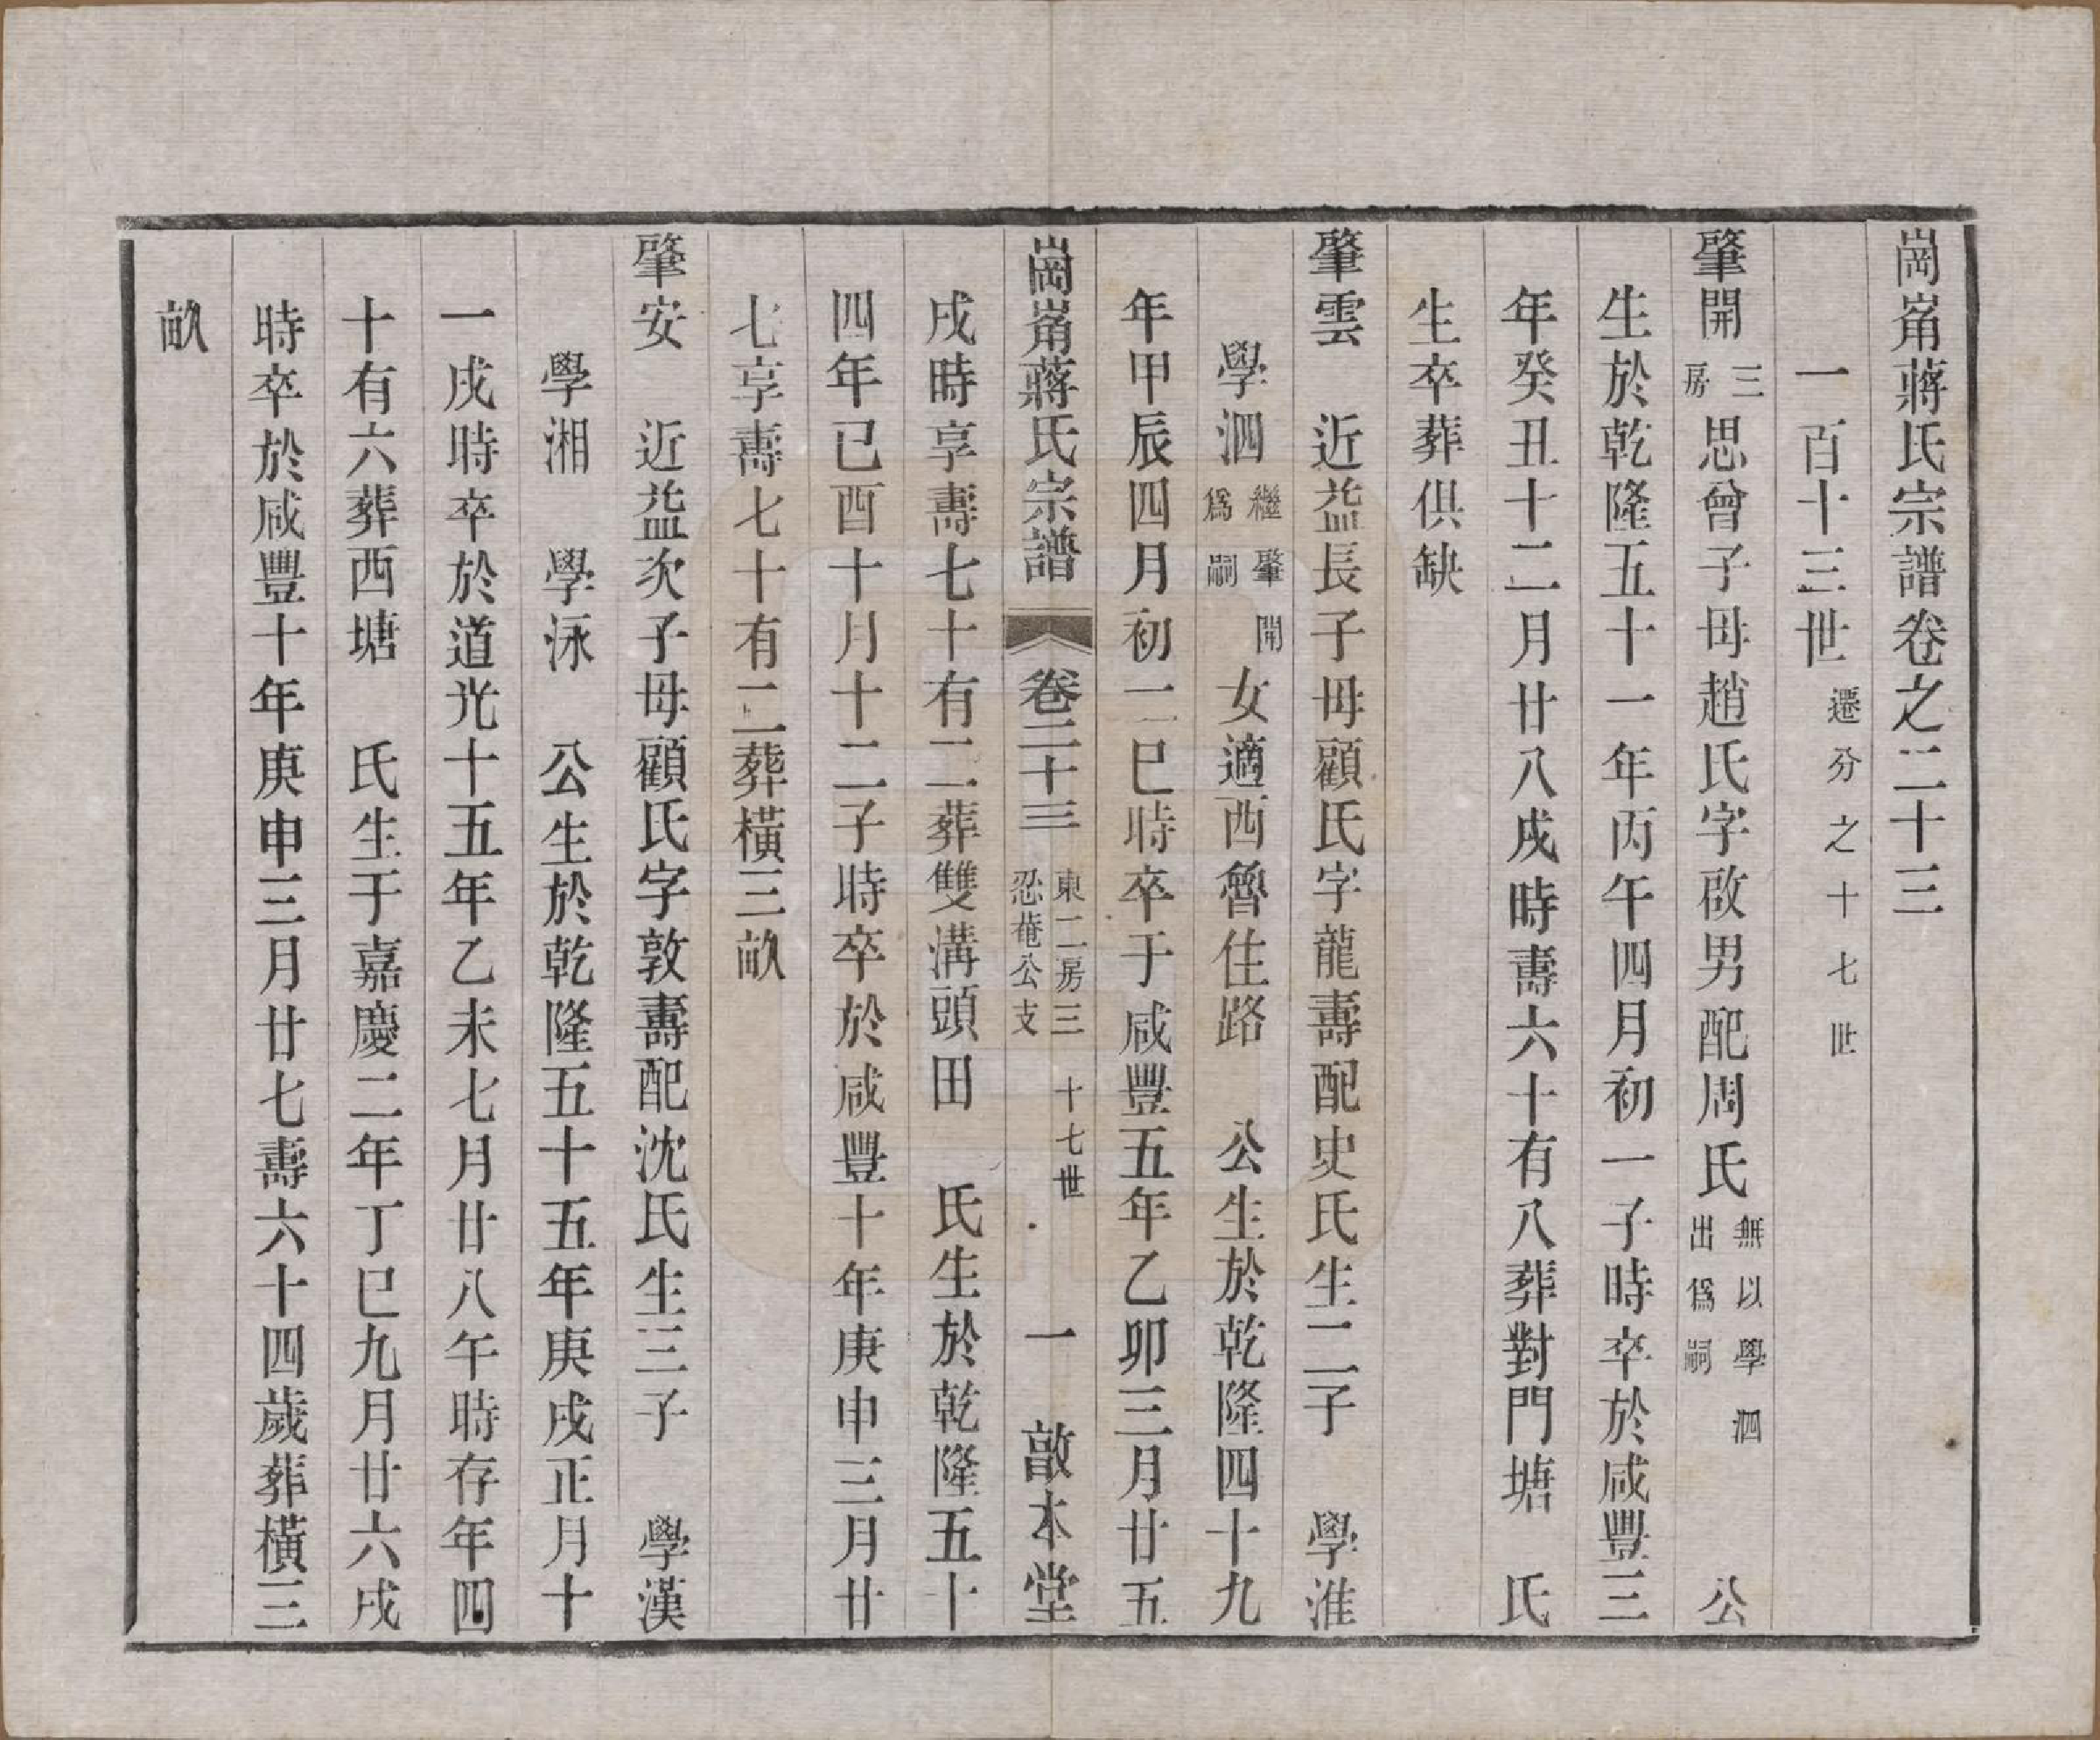 崗嵛蔣氏宗譜卷之二十三
一百十三世遷分之十七世
肇開三房思曾子母趙氏字啟男配周氏無以學泗出爲嗣　公
生於乾隆五十一年丙午四月初一子時卒於咸豐三
年癸丑十二月廿八戌時壽六十有八葬對門塘　氏
生卒葬俱缺
肇雲　近益長子母顧氏字龍壽配史氏生二子　學淮
學泗繼肇開爲嗣　女適西魯住路　公生於乾隆四十九
年甲辰四月初一巳時卒于咸豐五年乙卯三月廿五
崗嵛蔣氏宗譜　卷二十三　東二房三忍菴公支　十七世　一　敿本堂
戌時享壽七十有二葬雙溝頭田　氏生於乾隆五十
四年己酉十月十二子時卒於咸豐十年庚申三月廿
七享壽七十有二葬橫三畝
肇安　近益次子母顧氏字敦壽配沈氏生三子　學漢
學湘　學泳　公生於乾隆五十五年庚戌正月十
一戌時卒於道光十五年乙未七月廿八午時存年四
十有六葬西塘　氏生于嘉慶二年丁巳九月廿六戌
時卒於咸豐十年庚申三月廿七壽六十四歲葬橫三
畝